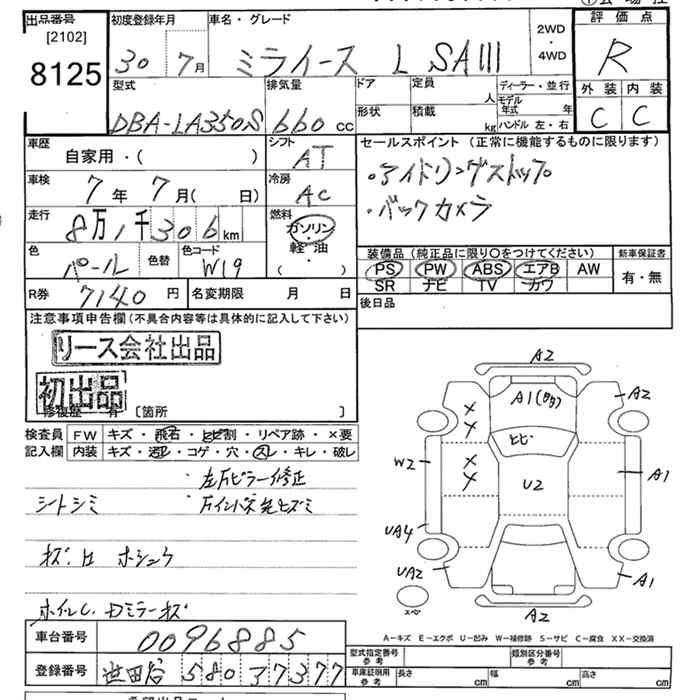 出品番号
[2102]
8125
初度登録年月
30年 7月
車名・グレード
ミライース L SAIII
2WD・4WD
評価点
R
外装 内装
C C
型式
DBA-LA350S
排気量
660 cc
ドア 定員 人
形状 積載 kg
ディーラー・並行
モデル年式 年
ハンドル 左・右
車歴
自家用・( )
シフト
AT
車検
7年 7月( 日)
冷房
AC
走行
8万1千306km
燃料
ガソリン・軽油
( ・ )
色
パール
色替
色コード
W19
R券 7140 円
名変期限 月 日
セールスポイント (正常に機能するものに限ります)
・アイドリングストップ
・バックカメラ
装備品 (純正品に限り○をつけてください)
PS PW ABS エアB AW
SR ナビ TV カワ
新車保証書
有・無
後日品
注意事項申告欄(不具合内容等は具体的に記入して下さい)
リース会社出品
初出品
修復歴 有 [箇所 ]
検査員記入欄
FW キズ・飛石・ヒビ割・リペア跡・×要
内装 キズ・汚レ・コゲ・穴・スレ・キレ・破レ
左Fピラー修正
シートシミ
ホイルC. Dミラーキズ
A2
A1
A2
ヒビ
X
X
X
X
W2
U2
A1
UA4
UA2
A1
A2
スペア
A-キズ E-エクボ U-凹み W-補修跡 S-サビ C-腐食 XX-交換済
車台番号 0096885
登録番号 世田谷 580 37377
型式指定番号 参考
類別区分番号 参考
車庫証明用 参考
長さ cm 幅 cm 高さ cm